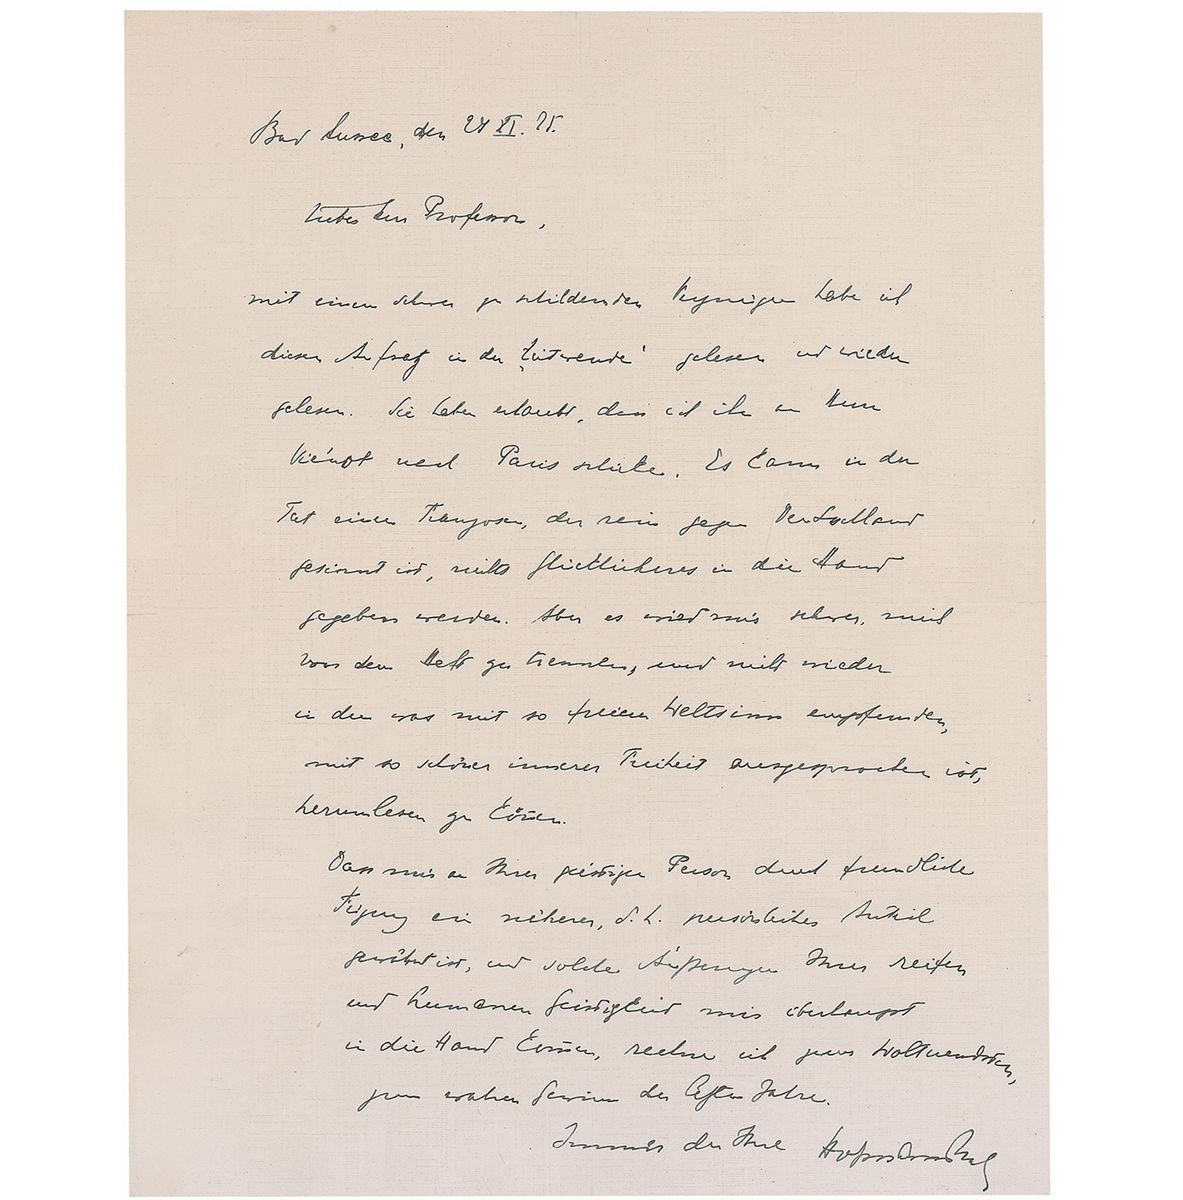 Bad Aussee, den 24 XI. 25.
Lieber Herr Professor,
mit einem schwer zu schildernden Vergnügen habe ich
diesen Aufsatz in der „Zeitwende" gelesen und wieder
gelesen. Sie haben erlaubt, dass ich ihn an Herrn
Viénot nach Paris schicke. Es kann in der
Tat einem Franzosen, der rein gegen Deutschland
gesinnt ist, nichts Glücklicheres in die Hand
gegeben werden. Aber es wird mir schwer, mich
von dem Heft zu trennen, und nicht wieder
in dem was mit so freiem Weltsinn empfunden,
mit so schöner innerer Freiheit ausgesprochen ist,
herumlesen zu können.
Dass mir an Ihrer geistigen Person durch freundliche
Fügung ein näherer, d. h. persönlicher Anteil
gewährt ist, und solche Äußerungen Ihrer reifen
und humanen Geistigkeit mir überhaupt
in die Hand kommen, rechne ich zum
zum wahren Gewinn der letzten Jahre.
Immer der Ihre Hofmannsthal